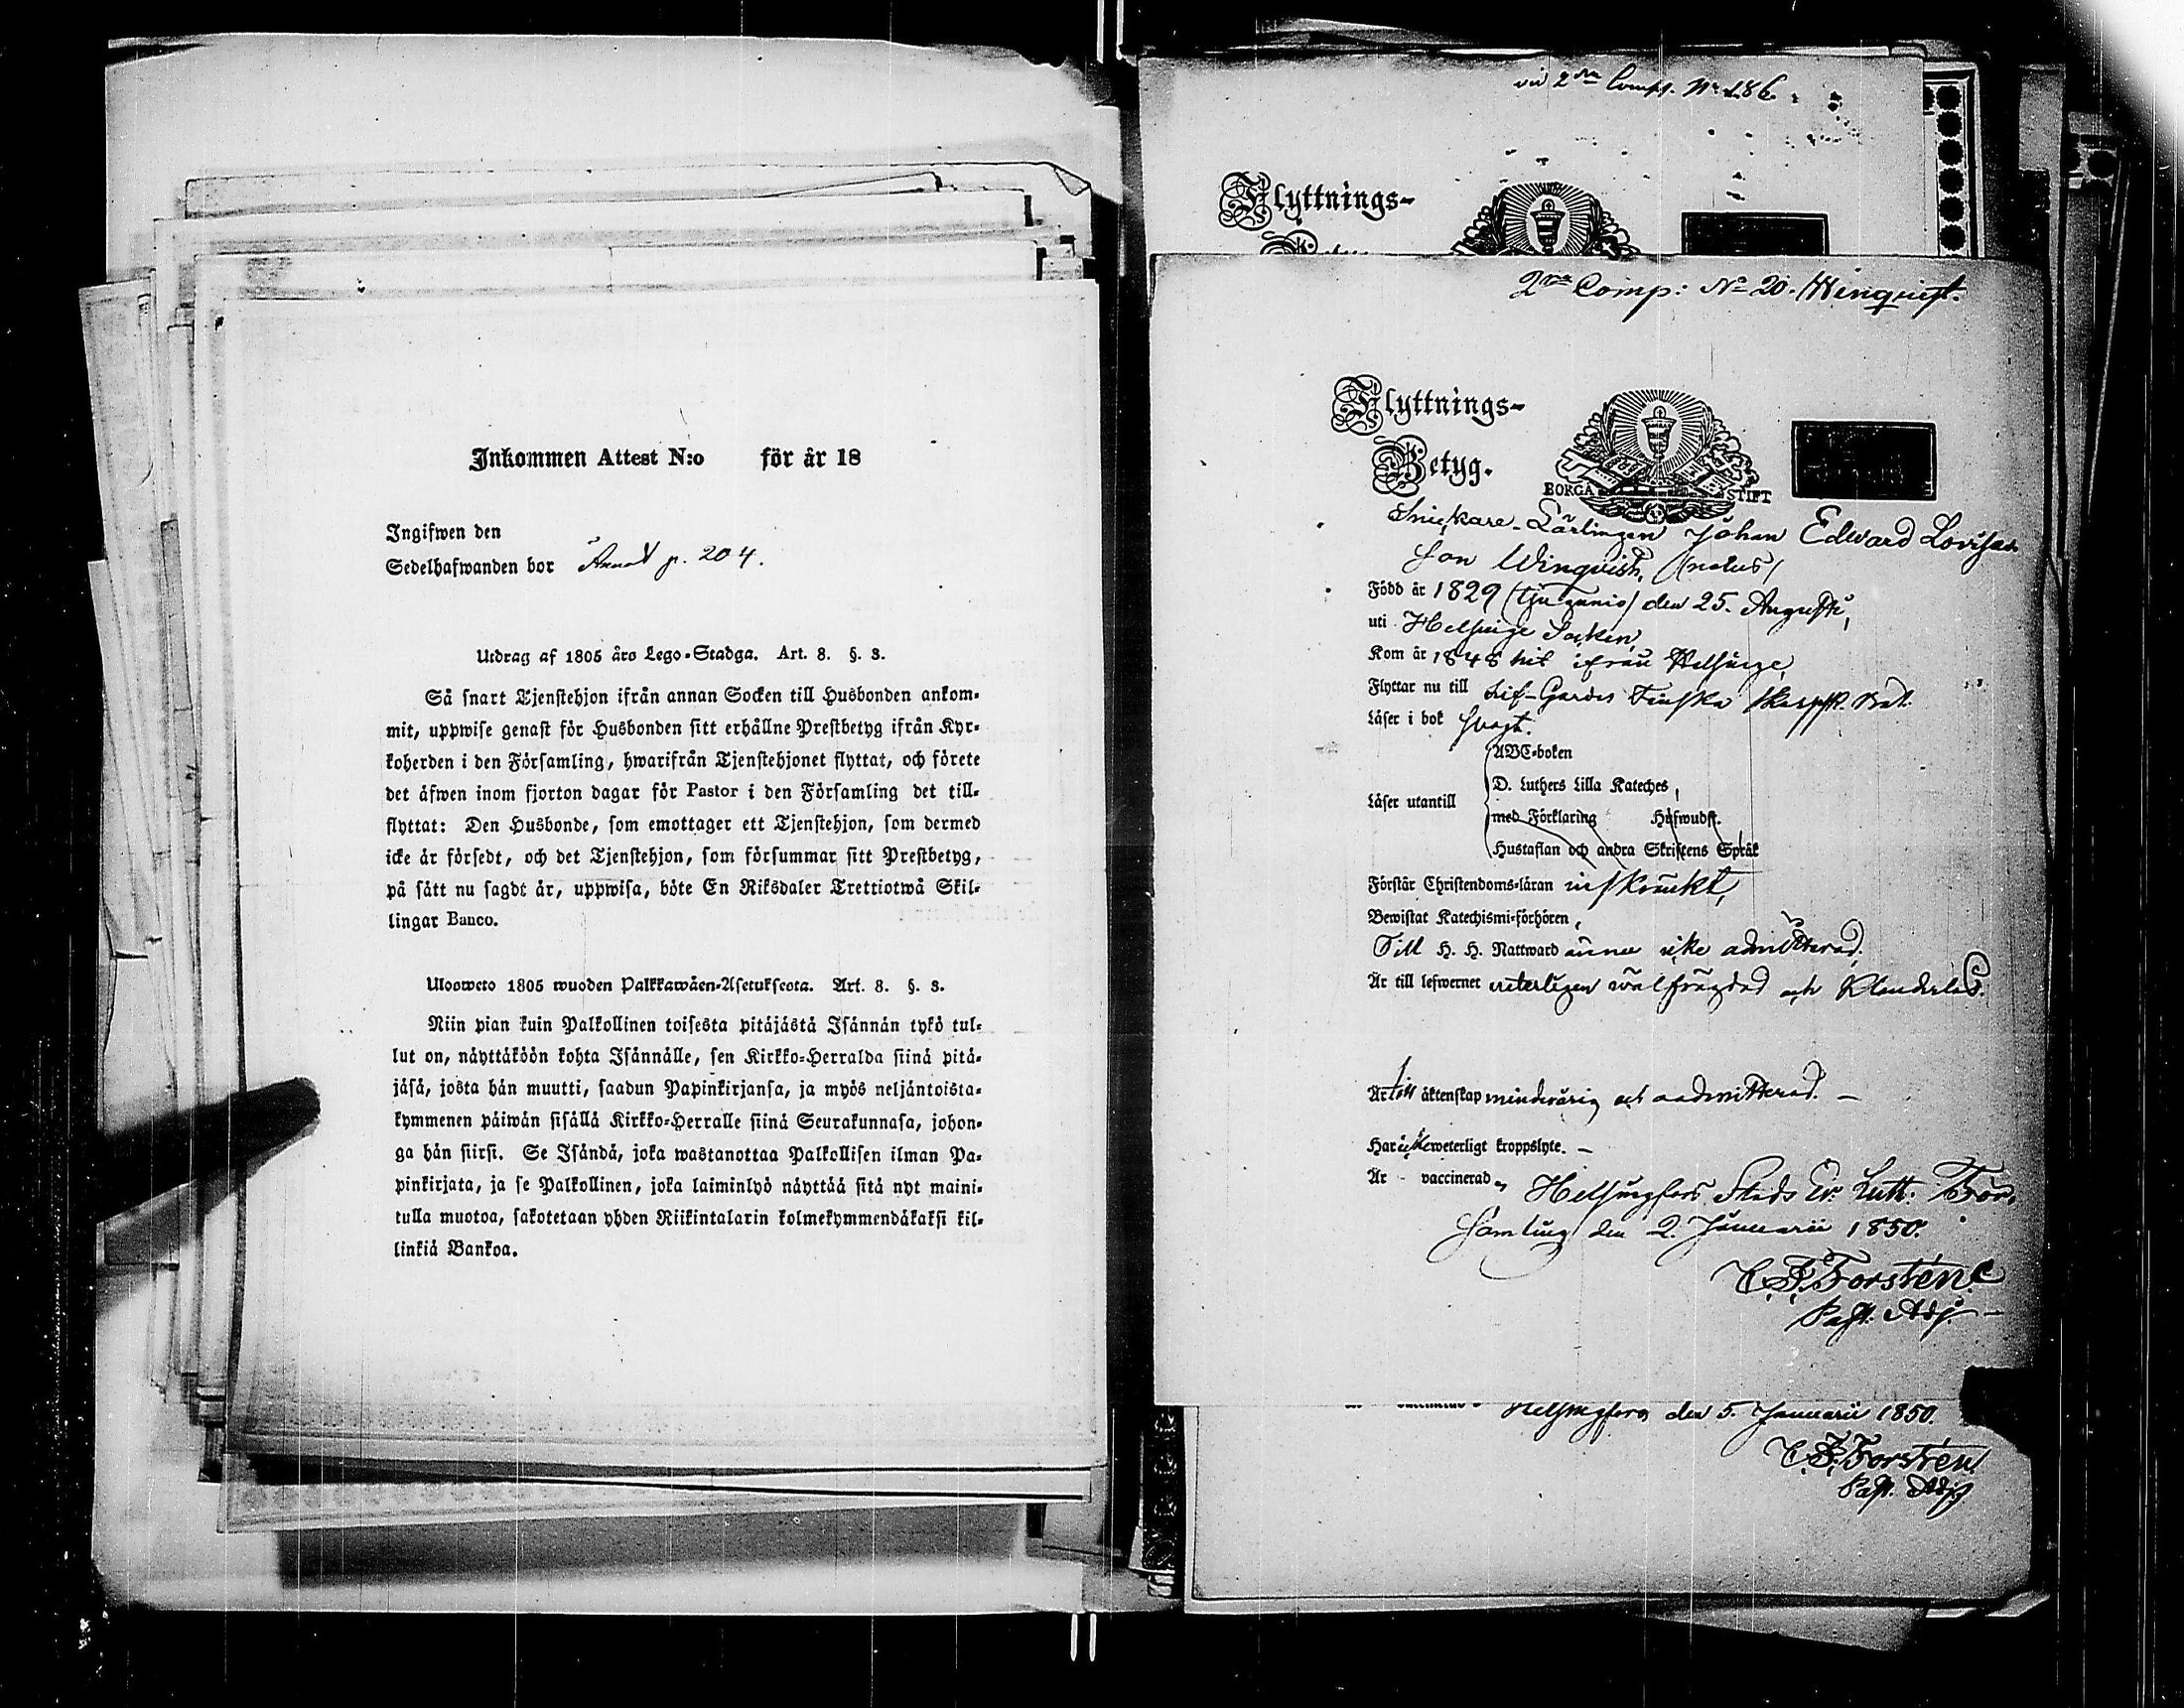 Inkommen Attest N:o för år 18
Ingifwen den
Sedelhafwanden bor Annat p. 204.
Utdrag af 1805 års Lego-Stadga. Art. 8. §. 3.
Så snart Tjenstehjon ifrån annan Socken till Husbonden ankom-
mit, uppwise genast för Husbonden sitt erhållne Prestbetyg ifrån Kyr-
koherden i den Församling, hwarifrån Tjenstehjonet flyttat, och förete
det äfwen inom fjorton dagar för Pastor i den Församling det till-
flyttat: Den Husbonde, som emottager ett Tjenstehjon, som dermed
icke är försedt, och det Tjenstehjon, som försummar sitt Prestbetyg,
på sätt nu sagdt är, uppwisa, böte En Riksdaler Trettiotwå Skil-
lingar Banco.
Uloswето 1805 wuoden Palkkawäen-Asetuksesta. Art. 8. §. 3.
Niin pian kuin Palkollinen toisesta pitäjästä Isännän tykö tul-
lut on, näyttäköön kohta Isännälle, sen Kirkko-Herralda siinä pitä-
jäsä, josta hän muutti, saadun Papinkirjansa, ja myös neljäntoista-
kymmenen päiwän sisällä Kirkko-Herralle siinä Seurakunnasa, johon-
ga hän siirsi. Se Isändä, joka wastanottaa Palkollisen ilman Pa-
pinkirjata, ja se Palkollinen, joka laiminlyö näyttää sitä nyt maini-
tulla muotoa, sakotetaan yhden Riikintalarin kolmekymmendäkaksi kil-
linkiä Bankoa.
vid 2dra Comp. No 186
Flyttnings-
2dra Comp: No 20. Winquist.
Flyttnings-
Betyg.
BORGÅ STIFT
Snickare-Lärlingen Johan Edward Lovisas
son Winqvist, (natus)
Född år 1829 (tjugunio) den 25. Augusti,
uti Helsinge Socken,
Kom år 1848 hit ifrån Helsinge,
Flyttar nu till Lif-Gardes Finska Skarpsk. Bat.
Läser i bok svagt.
ABC-boken
D. Luthers Lilla Kateches,
Läser utantill
med Förklaring Hufwudst.
Hustaflan och andra Skriftens Språk
Förstår Christendoms-läran inskränkt,
Bewistat Katechismi-förhören,
Till H. H. Nattward ännu icke admitterad.
Är till lefwernet veterligen välfrägdad och klanderlös.
Är till äktenskap minderårig och oadmitterad. —
Har icke weterligt kroppslyte. —
Är vaccinerad, Helsingfors Stads Ev. Luth. För-
samling den 2. Januarii 1850.
C. F. Forstén
Past. Adj. —
Helsingfors den 5. Januarii 1850.
C. F. Forstén
Past. Adj.